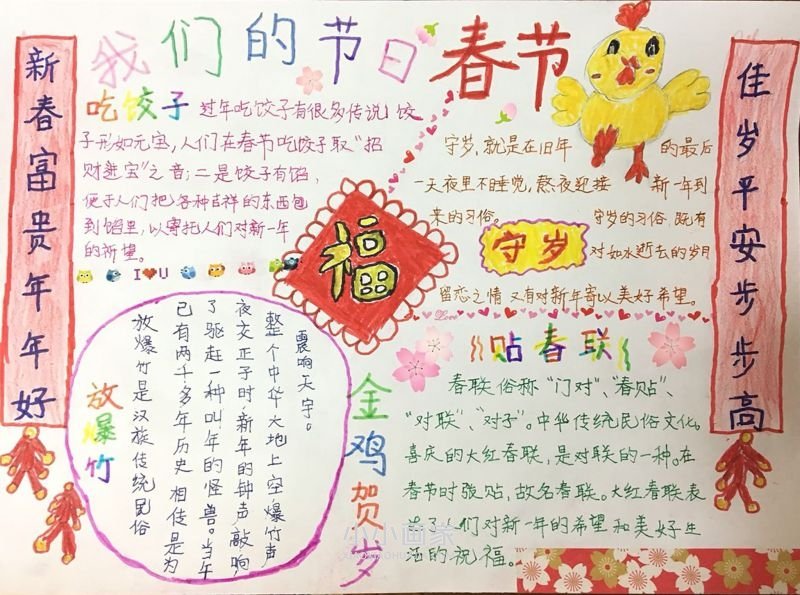 我们的节日
春节
新春富贵年年好
佳岁平安步步高
吃饺子
过年吃饺子有很多传说 饺
子形如元宝,人们在春节吃饺子取"招
财进宝"之音;二是饺子有馅,
便于人们把各种吉祥的东西包
到馅里,以寄托人们对新一年
的祈望。
I U
守岁,就是在旧年 的最后
一天夜里不睡觉,熬夜迎接 新一年到
来的习俗。 守岁的习俗,既有
守岁
对如水逝去的岁月
留恋之情 又有对新年寄以美好希望。
Love
福
放爆竹
放爆竹是汉族传统民俗
已有两千多年历史 相传是为
了驱赶一种叫年的怪兽。当年
夜交正子时,新年的钟声敲响
整个中华大地上空爆竹声
震响天宇。
金鸡贺岁
贴春联
春联俗称"门对"、"春贴"、
"对联"、"对子"。中华传统民俗文化。
喜庆的大红春联,是对联的一种。在
春节时张贴,故名春联。大红春联表
达了人们对新一年的希望和美好生
活的祝福。
小小画家